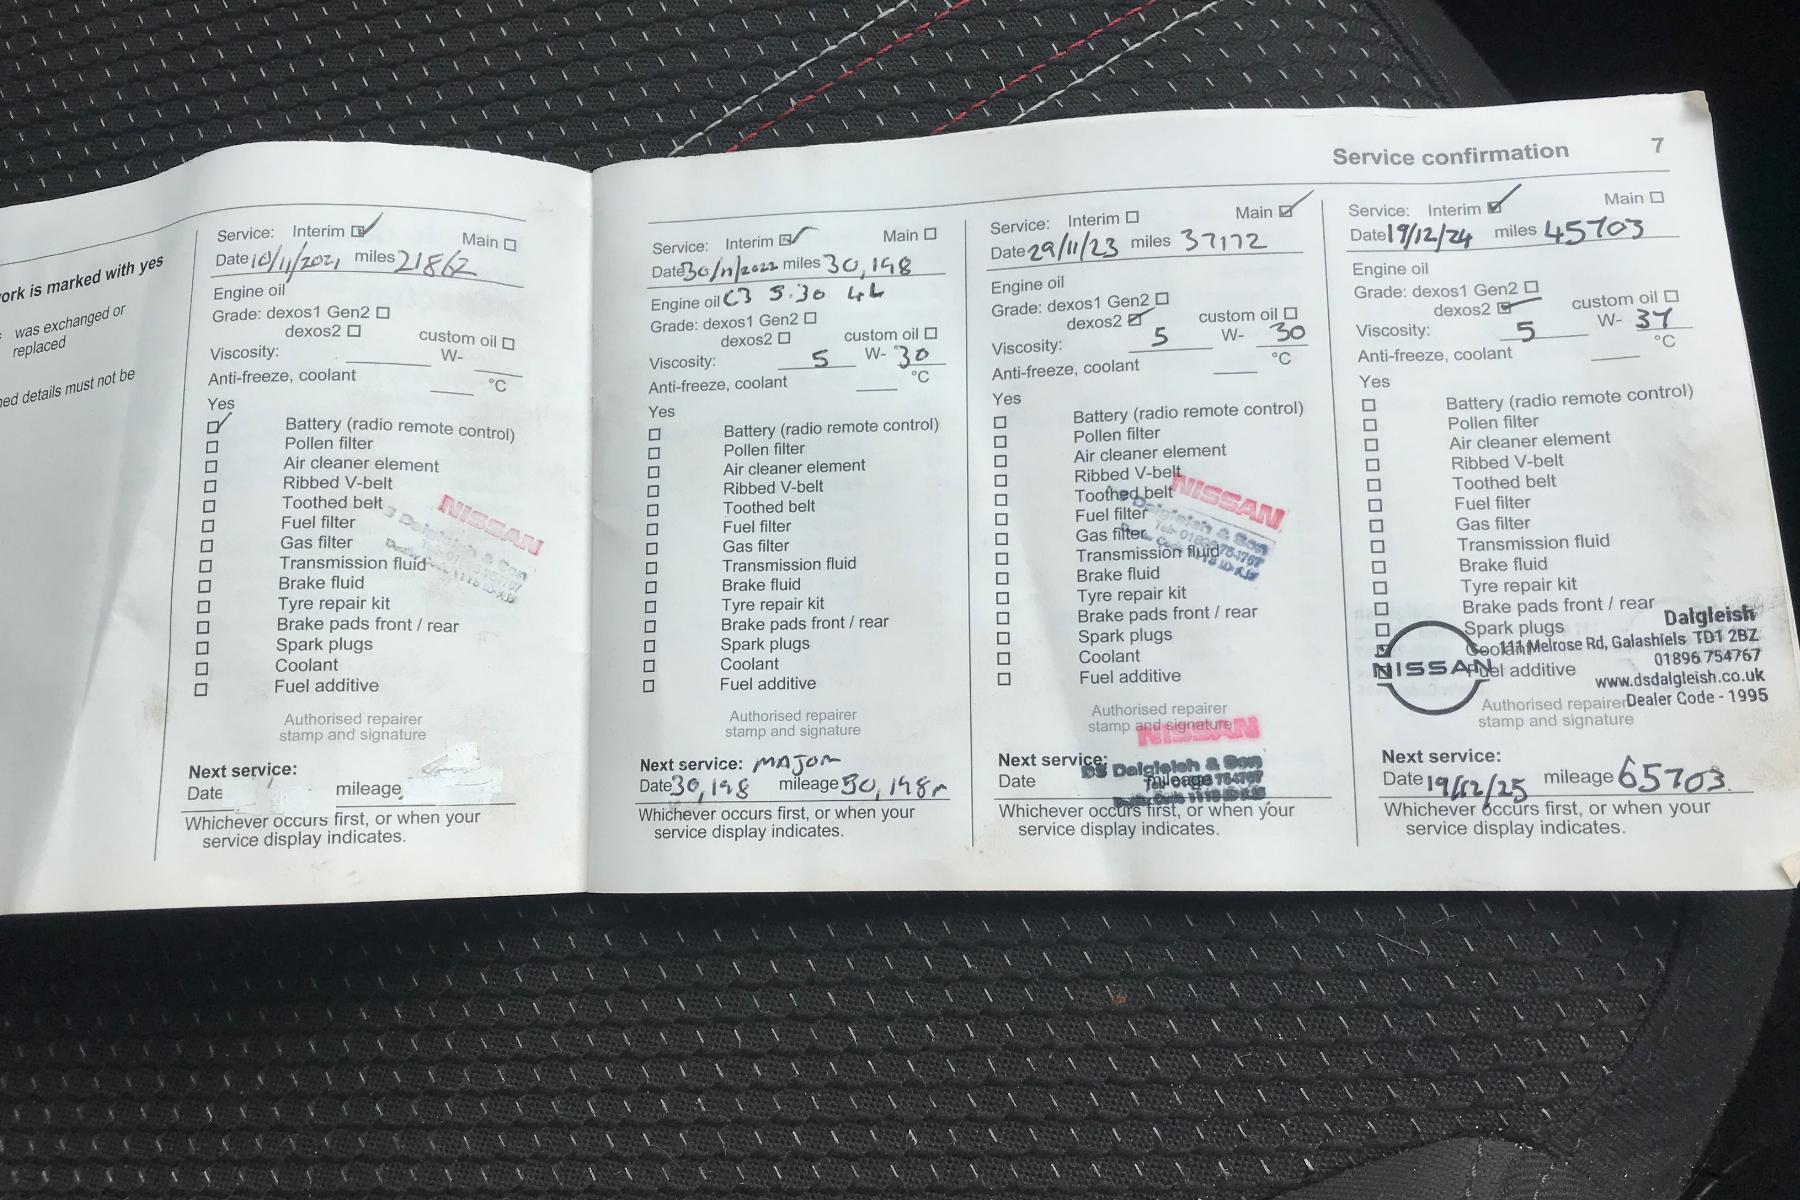 Service confirmation 7
ork is marked with yes
was exchanged or
replaced
ed details must not be
Service: Interim Main
Date 10/11/2021 miles 21862
Engine oil
Grade: dexos1 Gen2
dexos2 custom oil
Viscosity: W-
Anti-freeze, coolant °C
Yes
Battery (radio remote control)
Pollen filter
Air cleaner element
Ribbed V-belt
Toothed belt
Fuel filter
Gas filter
Transmission fluid
Brake fluid
Tyre repair kit
Brake pads front / rear
Spark plugs
Coolant
Fuel additive
NISSAN
Dalgleish & Son
Authorised repairer
stamp and signature
Next service:
Date mileage
Whichever occurs first, or when your
service display indicates.
Service: Interim Main
Date 30/11/2022 miles 30,198
Engine oil C3 5.30 4L
Grade: dexos1 Gen2
dexos2 custom oil
Viscosity: 5 W- 30
Anti-freeze, coolant °C
Yes
Battery (radio remote control)
Pollen filter
Air cleaner element
Ribbed V-belt
Toothed belt
Fuel filter
Gas filter
Transmission fluid
Brake fluid
Tyre repair kit
Brake pads front / rear
Spark plugs
Coolant
Fuel additive
Authorised repairer
stamp and signature
Next service: MAJOR
Date 30,198 mileage 50,198
Whichever occurs first, or when your
service display indicates.
Service: Interim Main
Date 29/11/23 miles 37172
Engine oil
Grade: dexos1 Gen2
dexos2 custom oil
Viscosity: 5 W- 30
Anti-freeze, coolant °C
Yes
Battery (radio remote control)
Pollen filter
Air cleaner element
Ribbed V-belt
Toothed belt
Fuel filter
Gas filter
Transmission fluid
Brake fluid
Tyre repair kit
Brake pads front / rear
Spark plugs
Coolant
Fuel additive
NISSAN
Dalgleish & Son
Tel: 01896 754767
Authorised repairer
stamp and signature
NISSAN
Next service:
DS Dalgleish & Son
Date mileage
Whichever occurs first, or when your
service display indicates.
Service: Interim Main
Date 19/12/24 miles 45703
Engine oil
Grade: dexos1 Gen2
dexos2 custom oil
Viscosity: 5 W- 37
Anti-freeze, coolant °C
Yes
Battery (radio remote control)
Pollen filter
Air cleaner element
Ribbed V-belt
Toothed belt
Fuel filter
Gas filter
Transmission fluid
Brake fluid
Tyre repair kit
Brake pads front / rear
Spark plugs
Coolant
Fuel additive
NISSAN
Dalgleish
111 Melrose Rd, Galashiels TD1 2BZ
01896 754767
www.dsdalgleish.co.uk
Dealer Code - 1995
Authorised repairer
stamp and signature
Next service:
Date 19/12/25 mileage 65703
Whichever occurs first, or when your
service display indicates.